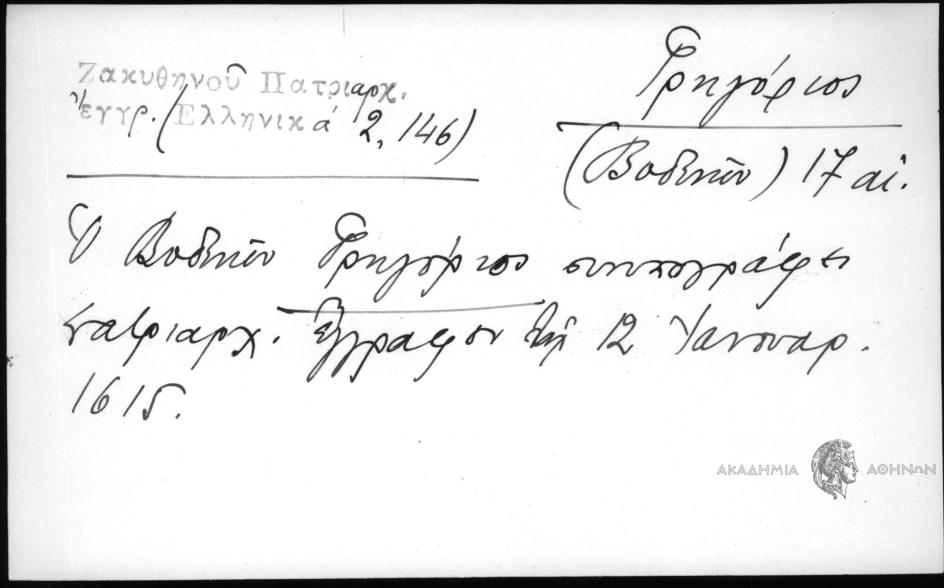 Ζακυθηνοῦ Πατριαρχ.
ἔγγρ. (Ἑλληνικά 2, 146)
Γρηγόριος
(Βοδενῶν) 17 αἰ.
Ὁ Βοδενῶν Γρηγόριος συνυπογράφει
πατριαρχ. ἔγγραφον τῇ 12 Ἰανουαρ.
1615.
ΑΚΑΔΗΜΙΑ ΑΘΗΝΩΝ